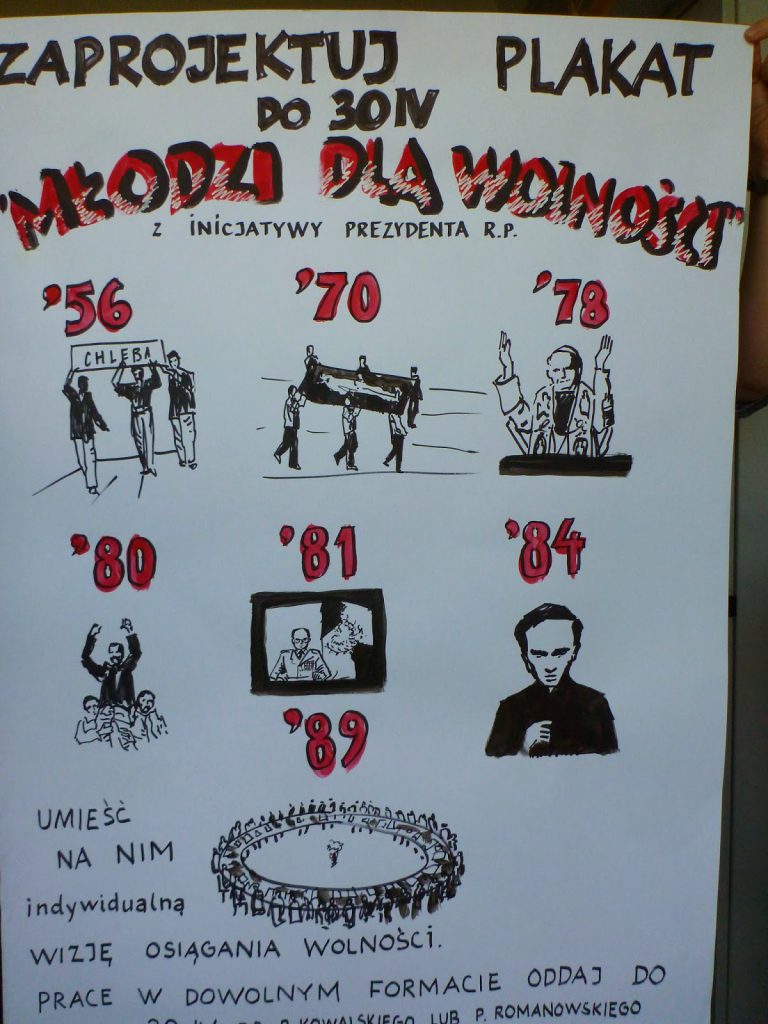 ZAPROJEKTUJ PLAKAT
DO 30 IV
"MŁODZI DLA WOLNOŚCI"
Z INICJATYWY PREZYDENTA R.P.
'56 '70 '78
CHLEBA
'80 '81 '84
'89
UMIEŚĆ
NA NIM
indywidualną
WIZJĘ OSIĄGANIA WOLNOŚCI.
PRACE W DOWOLNYM FORMACIE ODDAJ DO
KOWALSKIEGO LUB P. ROMANOWSKIEGO